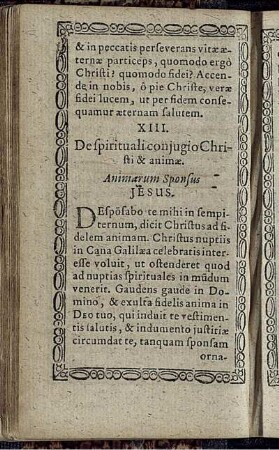 & in peccatis perseverans vitæ æ-
ternæ particeps, quomodo ergò
Christi? quomodo fidei? Accen-
de in nobis, ô pie Christe, veræ
fidei lucem, ut per fidem conse-
quamur æternam salutem.
XIII.
De spirituali conjugio Chri-
sti & animæ.
Animarum Sponsus
JESUS.
DEspōsabo te mihi in sempi-
ternum, dicit Christus ad fi-
delem animam. Christus nuptiis
in Cana Galilæa celebratis inter-
esse voluit, ut ostenderet quod
ad nuptias spirituales in mūdum
venerit. Gaudens gaude in Do-
mino, & exulta fidelis anima in
DEO tuo, qui induit te vestimen-
tis salutis, & indumento justitiæ
circumdat te, tanquam sponsam
orna-